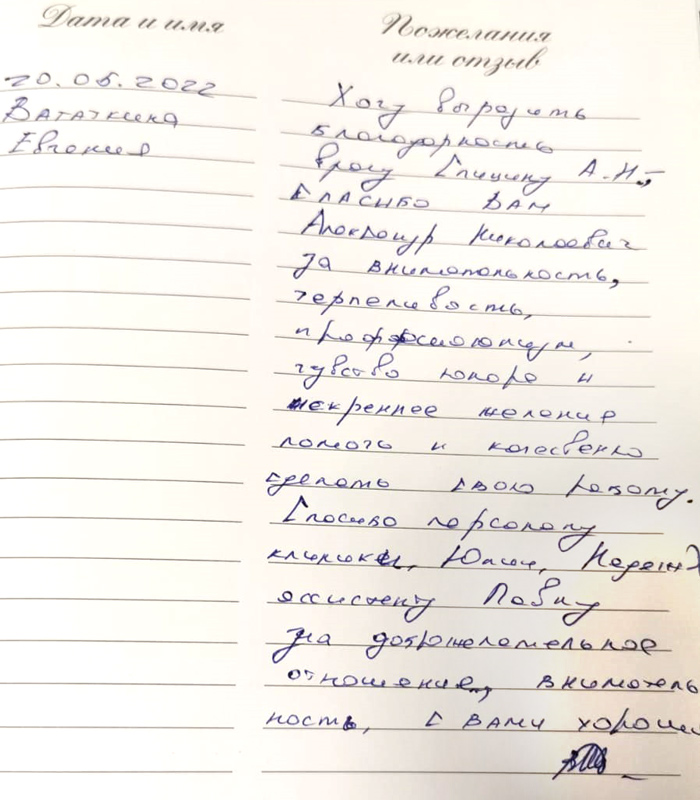 Дата и имя
Пожелания
или отзыв
20.05.2022
Вататкина
Евгения
Хочу выразить
благодарность
врачу Спицину А.Н.,
Спасибо Вам
Александр Николаевич
за внимательность,
терпеливость,
чувство юмора и
искреннее желание
помочь и качественно
сделать свою работу.
Спасибо персоналу
клиники, Юлии,
ассистенту Павлу
за доброжелательное
отношение, вниматель
ность, с вами хорошо